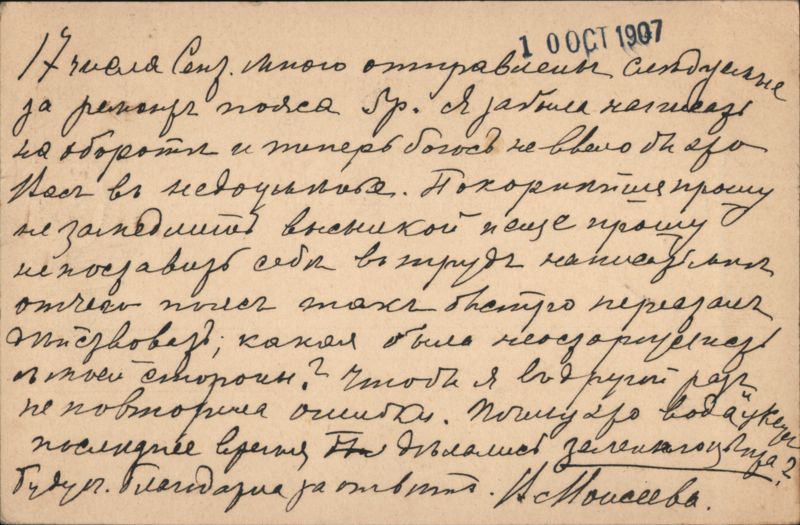 10 OCT 1907
17 числа Сент. мною отправлены следуемые
за ремонт пояса 5р. Я забыла написать
на оборотѣ и теперь боюсь не ввело бы это
Васъ въ недоумѣніе. Покорнѣйше прошу
не замедлить высылкой и еще прошу
не поставить себѣ въ трудъ написать мнѣ
отчего поясъ такъ быстро пересталъ
дѣйствовать; какая была неосторожность
съ моей стороны? Чтобы я въ другой разъ
не повторила ошибки. Почему это вода у
последнее время дѣлалась зеленаго цвѣта?
буду благодарна за отвѣтъ. Моисеева.